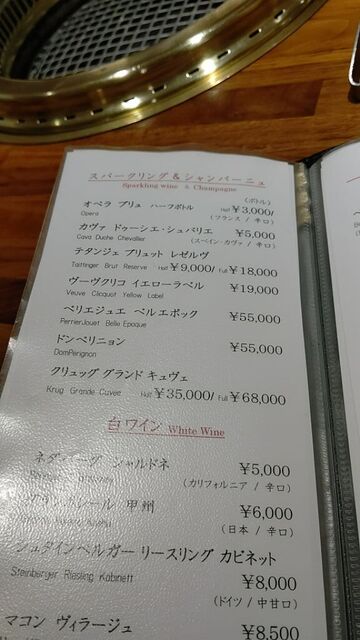 スパークリング&シャンパーニュ
Sparkling wine & Champagne
(ボトル)
オペラ ブリュ ハーフボトル Half ¥3,000/
Opera (フランス / 辛口)
カヴァ ドゥーシエ・シュバリエ ¥5,000
Cava Duche Chevallier (スペイン・カヴァ / 辛口)
テタンジェ ブリュット レゼルヴ
Taittinger Brut Reserve Half ¥9,000/ Full ¥18,000
ヴーヴクリコ イエローラベル ¥19,000
Veuve Clicquot Yellow Label
ペリエジュエ ベルエポック ¥55,000
PerrierJouet Belle Epoque
ドンペリニョン ¥55,000
DomPerignon
クリュッグ グランド キュヴェ
Krug Grande Cuvee Half ¥35,000/ Full ¥68,000
白ワイン White Wine
シャルドネ ¥5,000
(カリフォルニア / 辛口)
甲州 ¥6,000
(日本 / 辛口)
シュタインベルガー リースリング カビネット
Steinberger Riesling Kabinett ¥8,000
(ドイツ / 中甘口)
マコン ヴィラージュ ¥8,500